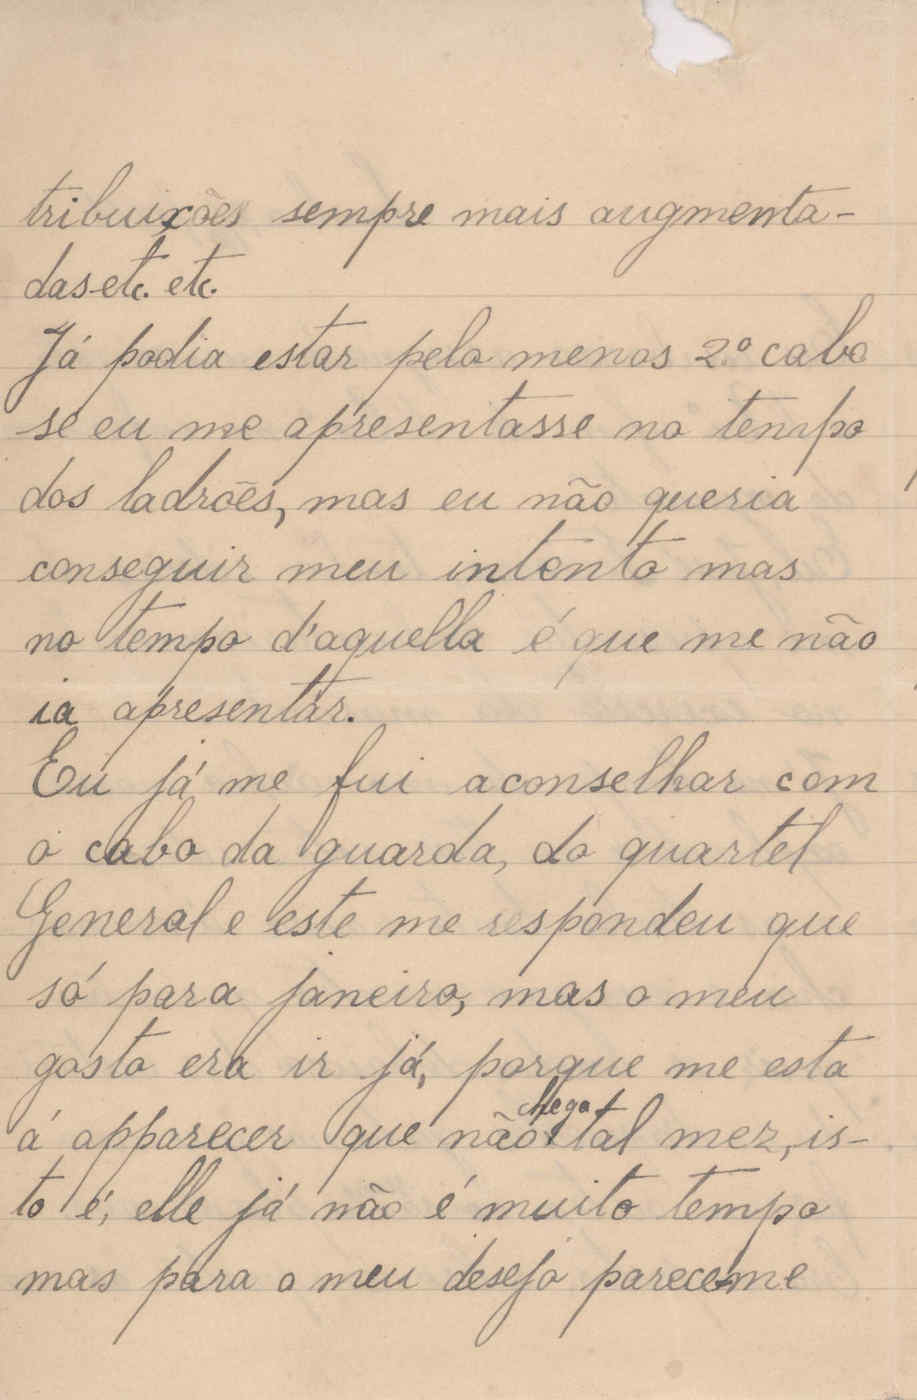 tribuixões sempre mais augmenta-
das etc. etc.
Já podia estar pelo menos 2.º cabo
se eu me apresentasse no tempo
dos ladrões, mas eu não queria
conseguir meu intento mas
no tempo d'aquella é que me não
ia apresentar.
Eu já me fui aconselhar com
o cabo da guarda, do quartel
General e este me respondeu que
só para janeiro, mas o meu
gosto era ir já, porque me esta
á apparecer que não chega tal mez, is-
to é, elle já não é muito tempo
mas para o meu desejo pareceme